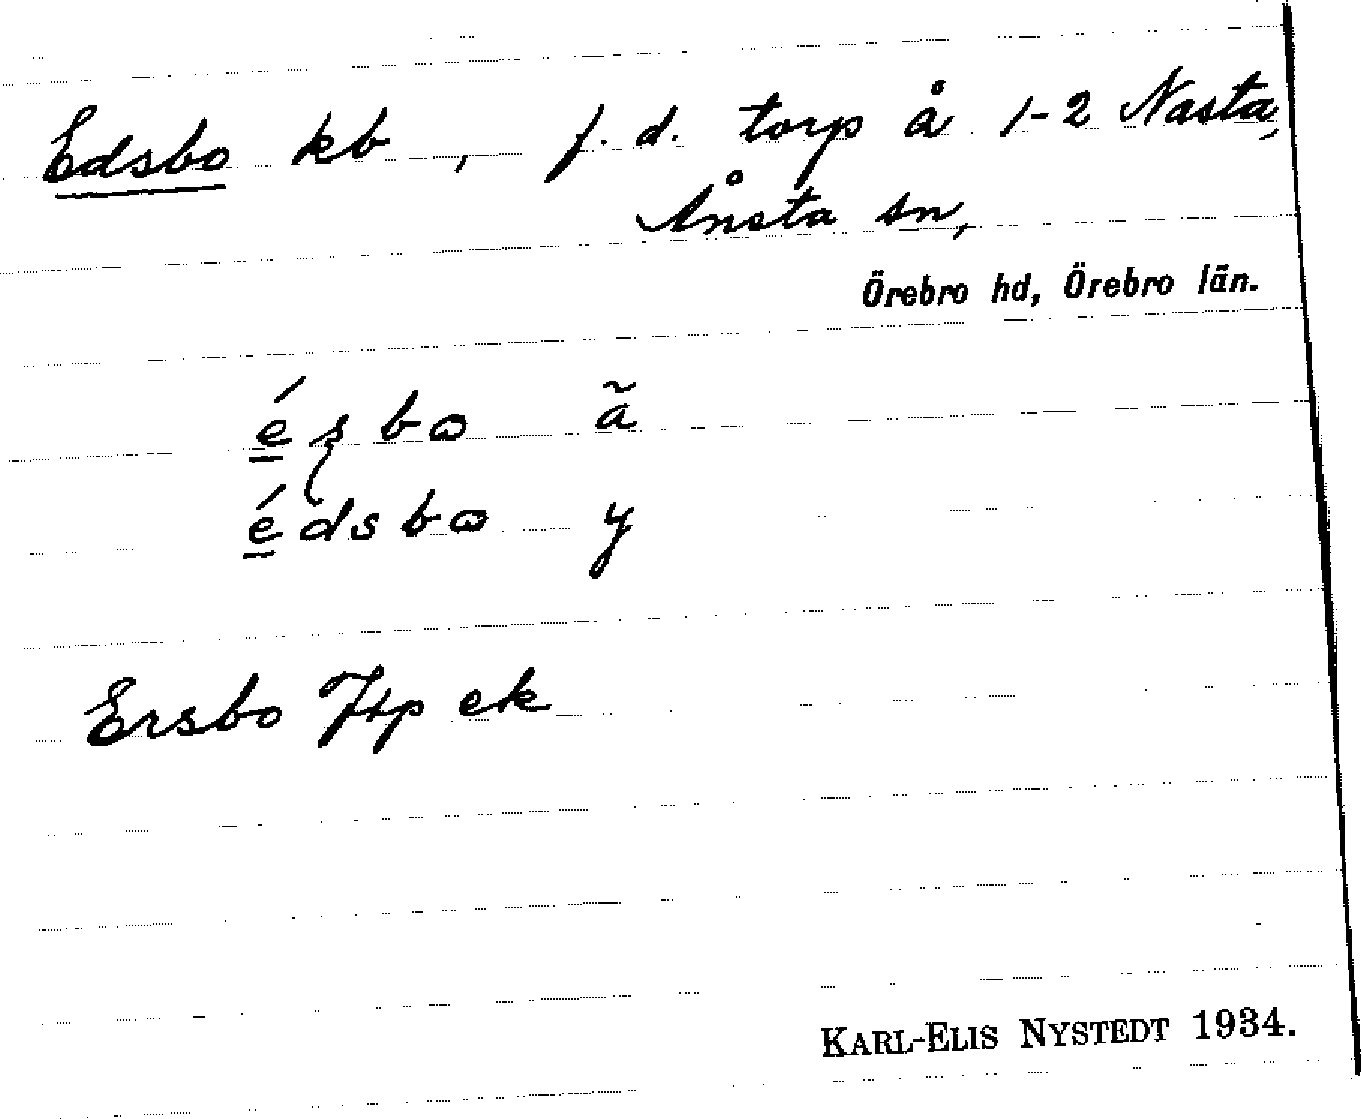 Edsbo kb, f. d. torp å 1-2 Nasta,
Ånsta sn,
Örebro hd, Örebro län.
é̲ʂbɷ ã
é̲dsbɷ y
Ersbo Jtp ek
KARL-ELIS NYSTEDT 1934.